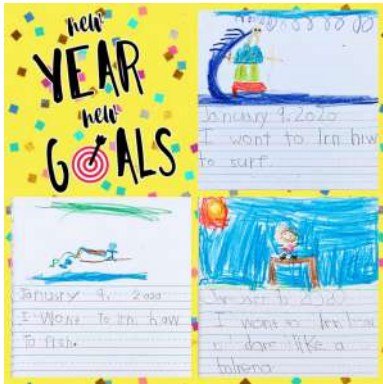 new
YEAR
new
GOALS
January 9, 2020
I wont to lrn hiw
to surf.
January 9, 2020
I Wont To lrn how
To fish.
I wont to lrn how
to dane like a